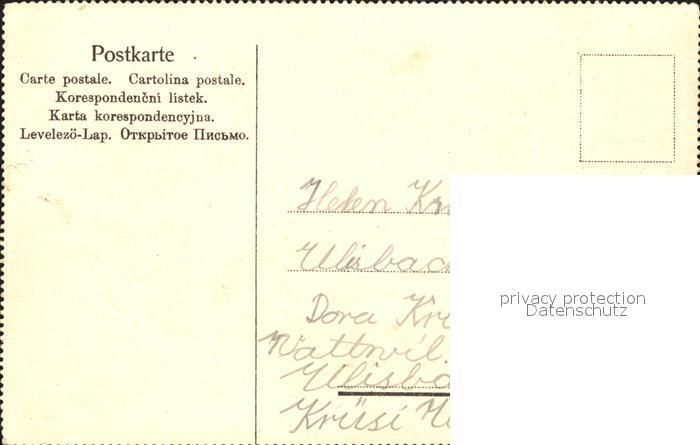 Postkarte
Carte postale. Cartolina postale.
Korespondenční lístek.
Karta korespondencyjna.
Levelezö-Lap. Открытое Письмо.
Helen Kr
Ulisbac
privacy protection
Datenschutz
Dora Kr
Wattwil.
Ulisba
Krüsi He